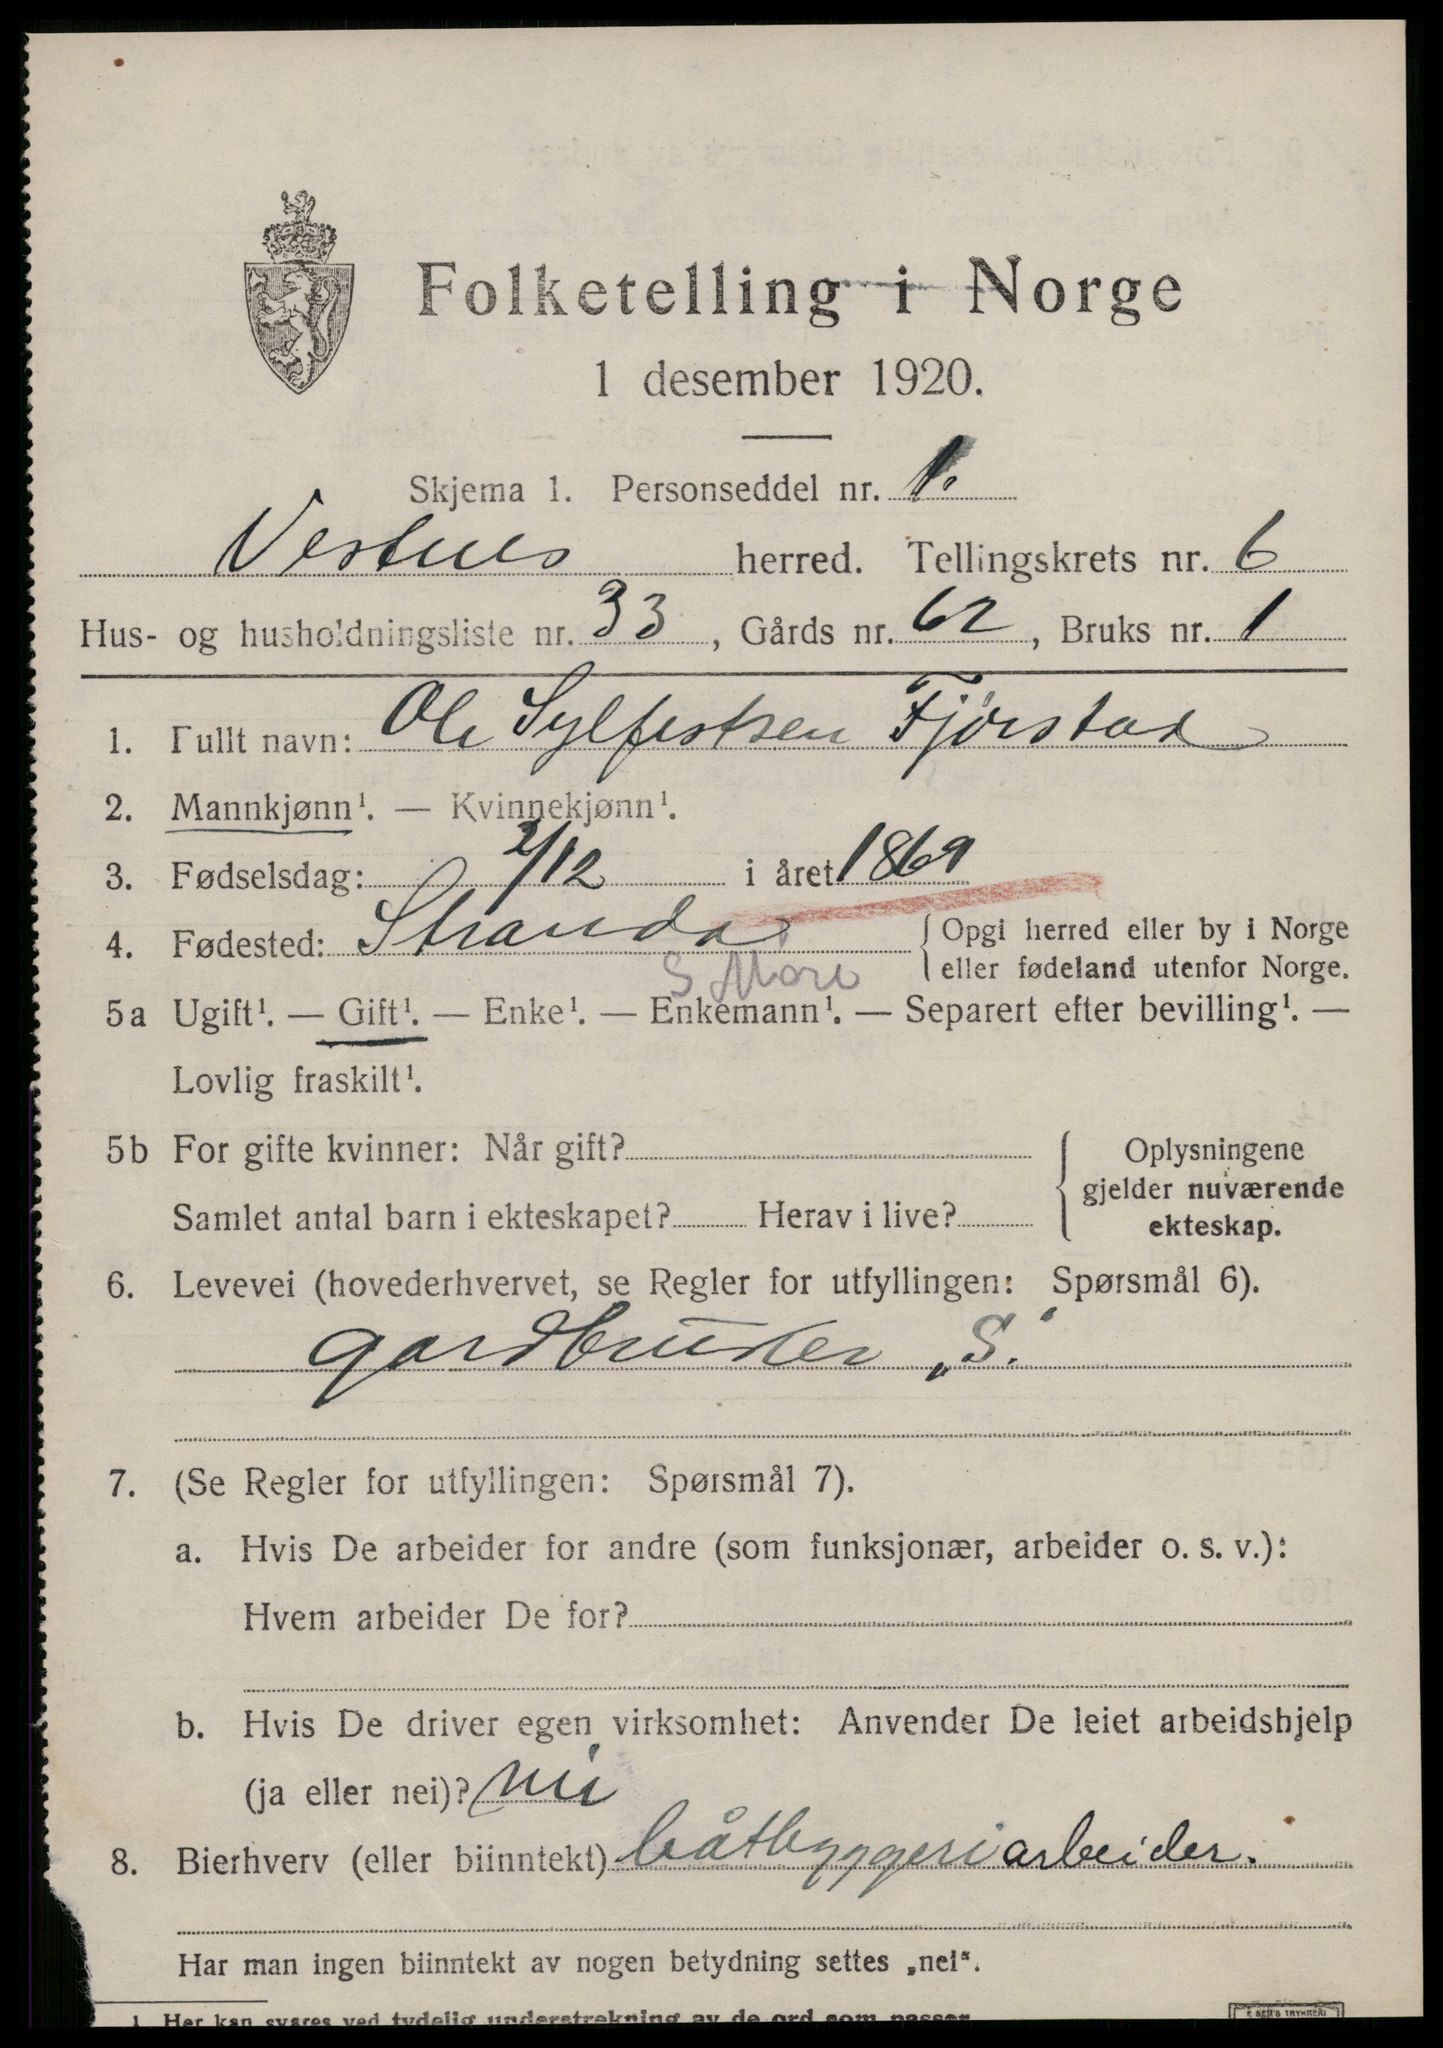 Folketelling i Norge
1 desember 1920.
Skjema 1. Personseddel nr. 1.
Vestnes herred. Tellingskrets nr. 6
Hus- og husholdningsliste nr. 33, Gårds nr. 62, Bruks nr. 1
1. Fullt navn: Ole Sylfestsen Fjørstad
2. Mannkjønn¹. — Kvinnekjønn¹.
3. Fødselsdag: 2/12 i året 1869
4. Fødested: Stranda { Opgi herred eller by i Norge
S Møre eller fødeland utenfor Norge.
5a Ugift¹. — Gift¹. — Enke¹. — Enkemann¹. — Separert efter bevilling¹. —
Lovlig fraskilt¹.
5b For gifte kvinner: Når gift? { Oplysningene
gjelder nuværende
Samlet antal barn i ekteskapet? Herav i live? ekteskap.
6. Levevei (hovederhvervet, se Regler for utfyllingen: Spørsmål 6).
gardbruker „S."
7. (Se Regler for utfyllingen: Spørsmål 7).
a. Hvis De arbeider for andre (som funksjonær, arbeider o. s. v.):
Hvem arbeider De for?
b. Hvis De driver egen virksomhet: Anvender De leiet arbeidshjelp
(ja eller nei)? nei
8. Bierhverv (eller biinntekt) båtbyggeriarbeider.
Har man ingen biinntekt av nogen betydning settes „nei“.
1. Her kan svares ved tydelig understrekning av de ord som passer.
E SEM'S TRYKKERI